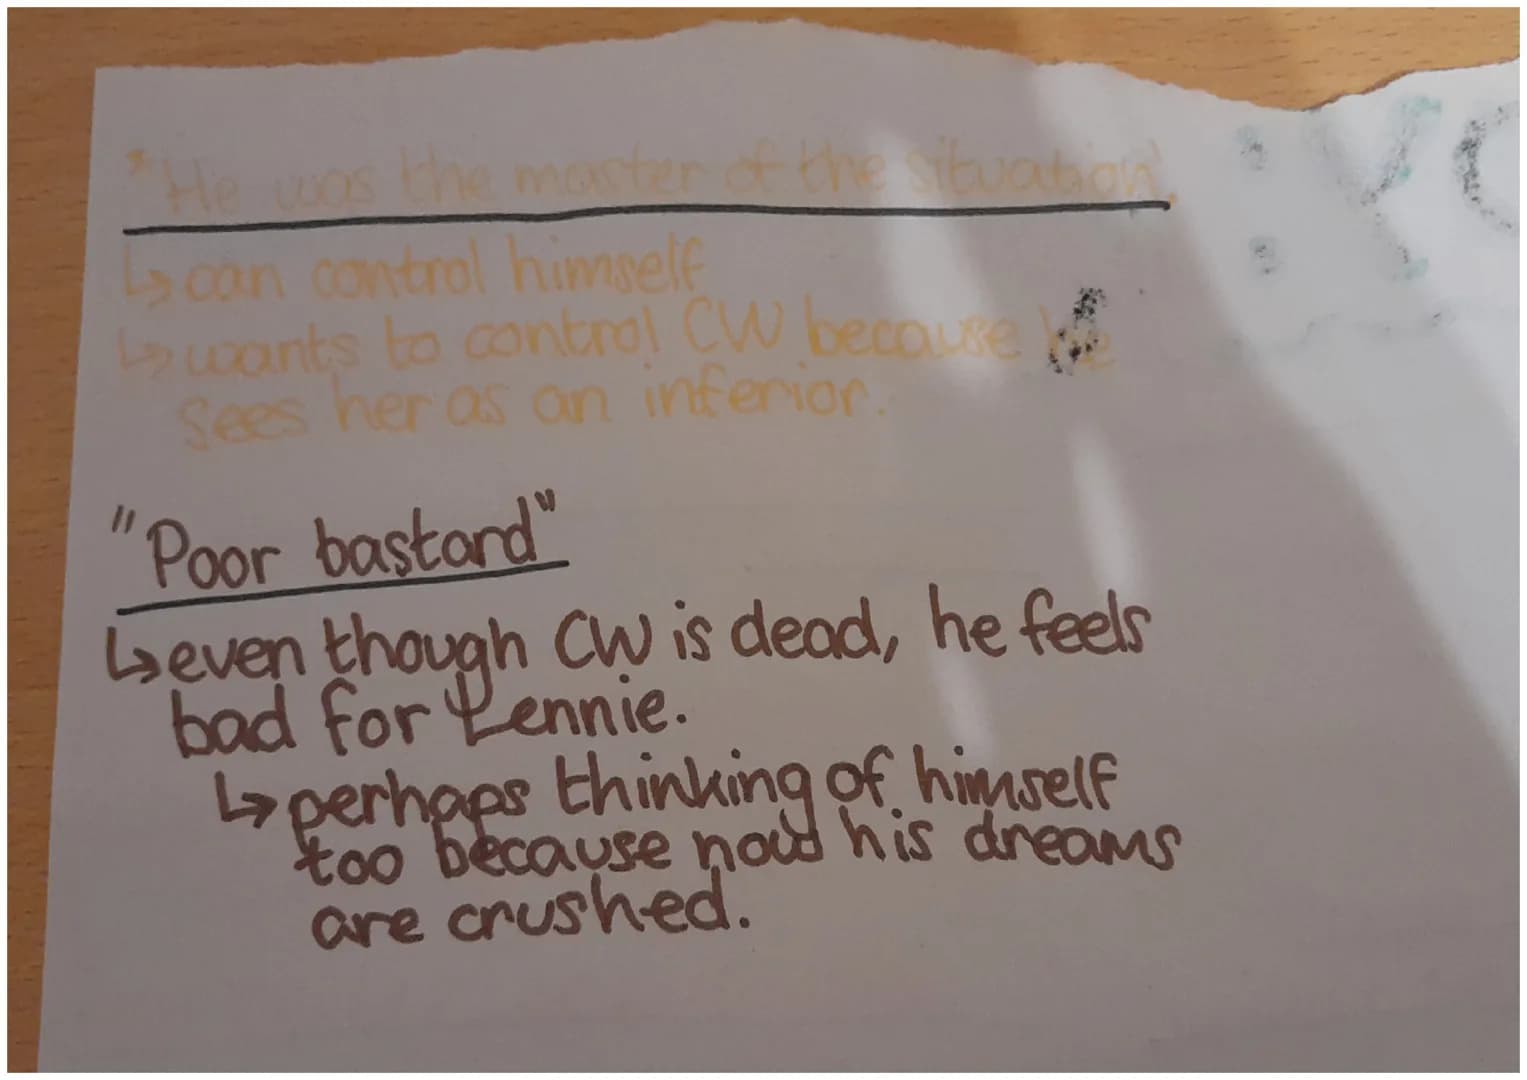 "He was the master of the situation".
↳ can control himself
↳ wants to control CW because he
sees her as an inferior.
"Poor bastard"
↳ even though CW is dead, he feels
bad for Lennie.
↳ perhaps thinking of himself
too because now his dreams
are crushed.